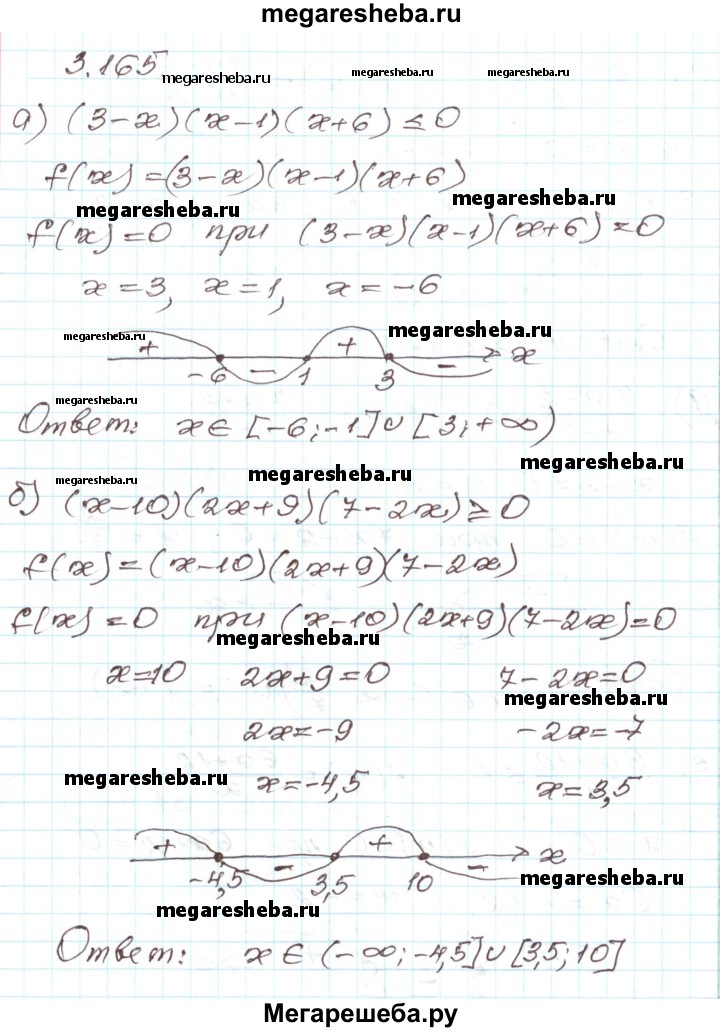 megaresheba.ru
3.165
megaresheba.ru megaresheba.ru megaresheba.ru
а) (3-x)(x-1)(x+6) ≤ 0
f(x) = (3-x)(x-1)(x+6)
megaresheba.ru megaresheba.ru
f(x) = 0 при (3-x)(x-1)(x+6) = 0
x = 3, x = 1, x = -6
megaresheba.ru megaresheba.ru
+ - + - x
-6 1 3
megaresheba.ru
Ответ: x ∈ [-6; -1] ∪ [3; +∞)
megaresheba.ru megaresheba.ru megaresheba.ru
б) (x-10)(2x+9)(7-2x) ≥ 0
f(x) = (x-10)(2x+9)(7-2x)
f(x) = 0 при (x-10)(2x+9)(7-2x) = 0
megaresheba.ru
x=10 2x+9=0 7-2x=0
megaresheba.ru
2x=-9 -2x=-7
megaresheba.ru
x=-4,5 x=3,5
+ - + - x
-4,5 3,5 10
megaresheba.ru
megaresheba.ru
Ответ: x ∈ (-∞; -4,5] ∪ [3,5; 10]
Мегарешеба.ру